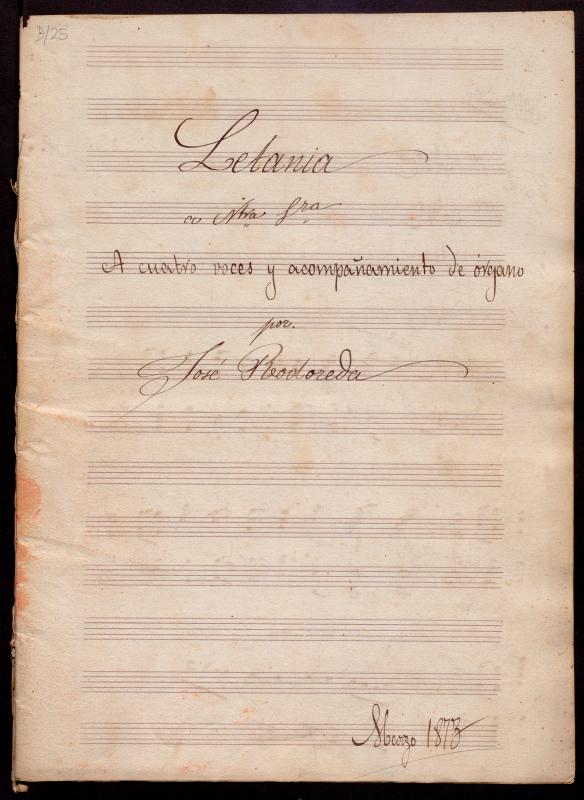 D/25
Letania
a Ntra Sra
A cuatro voces y acompañamiento de órgano
por.
José Rodoreda
Marzo 1873